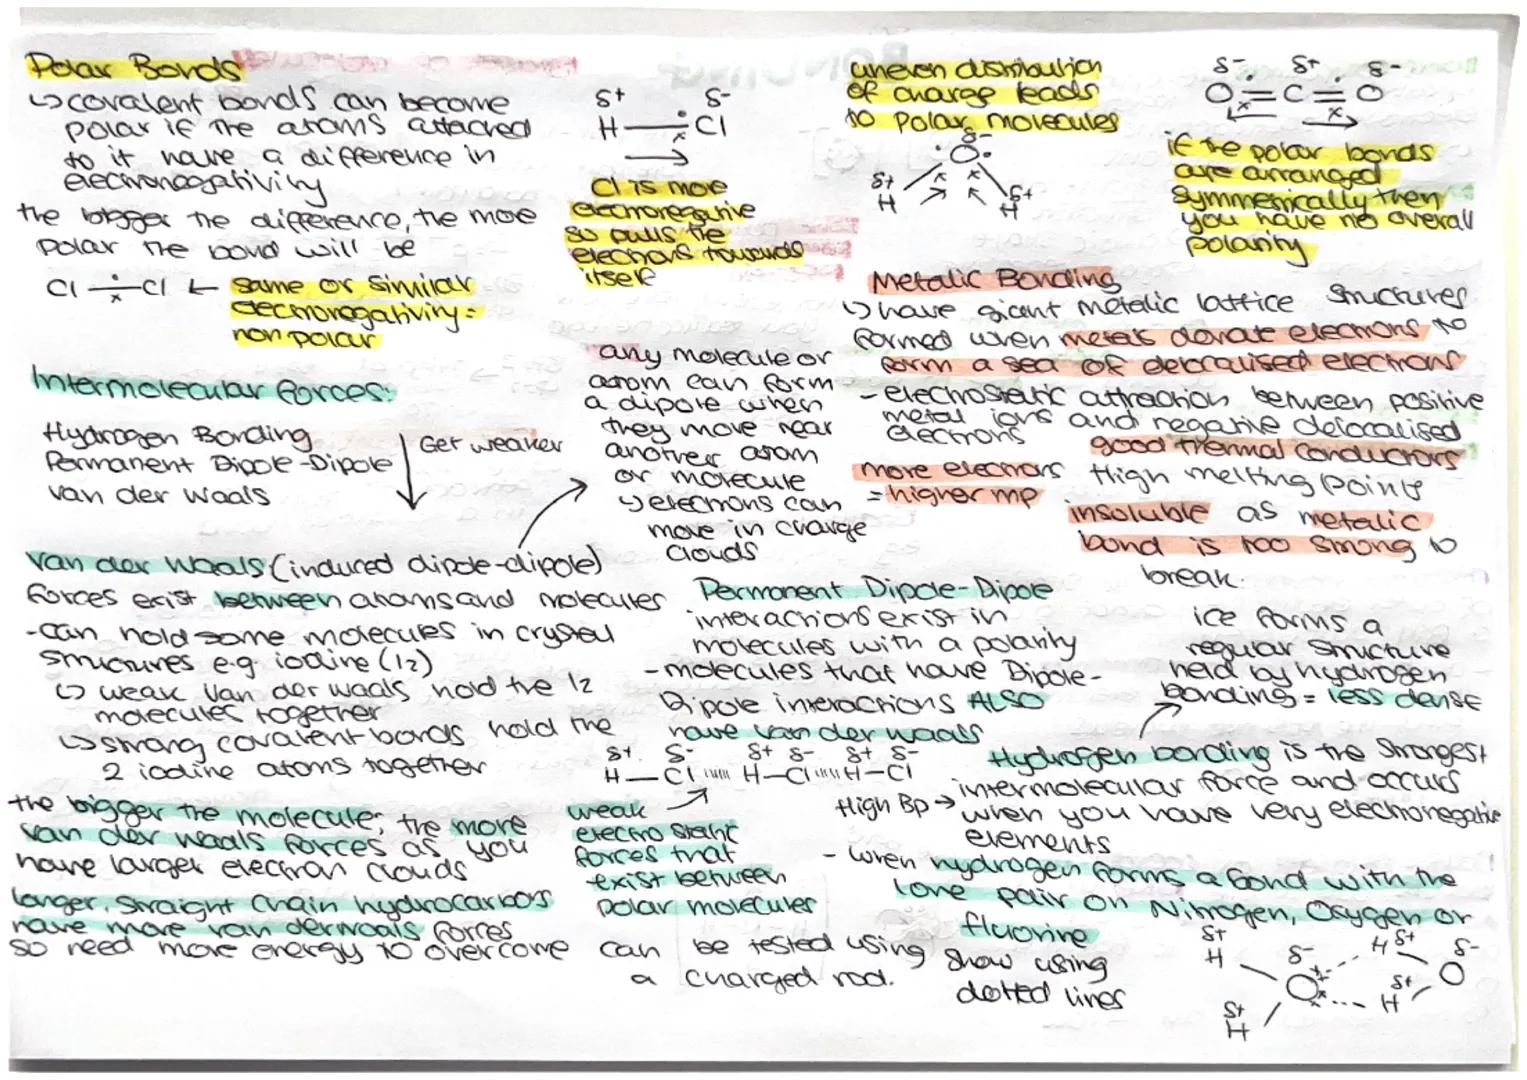 Polar Bonds
↳ covalent bonds can become
polar if the atoms attached
to it have a difference in
electronegativity
the bigger the difference, the more
polar the bond will be
Cl —— Cl ← same or similar
electronegativity =
non polar
δ+ δ-
H —— Cl
Cl is more
electronegative
so pulls the
electrons towards
itself
uneven distribution
of charge leads
to polar molecules
δ-
O
δ+ δ+
H H
δ- δ+ δ-
O = C = O
if the polar bonds
are arranged
symmetrically then
you have no overall
polarity
Metalic Bonding
↳ have giant metalic lattice structures
formed when metals donate electrons to
form a sea of delocalised electrons
- electrostatic attraction between positive
metal ions and negative delocalised
electrons
good thermal conductors
more electrons
= higher mp
High melting points
insoluble as metalic
bond is too strong to
break.
Intermolecular forces:
Hydrogen Bonding
Permanent Dipole-Dipole
van der waals
Get weaker
any molecule or
atom can form
a dipole when
they move near
another atom
or molecule
↳ electrons can
move in charge
clouds
Van der Waals (induced dipole-dipole)
forces exist between atoms and molecules
- can hold some molecules in crystal
structures e.g iodine (I2)
↳ weak van der waals hold the I2
molecules together
↳ strong covalent bonds hold the
2 iodine atoms together
the bigger the molecule, the more
van der waals forces as you
have larger electron clouds
longer, straight chain hydrocarbons
have more van derwaals forces
so need more energy to overcome
Permanent Dipole-Dipole
interactions exist in
molecules with a polarity
- molecules that have Dipole-
Dipole interactions ALSO
have van der waals
δ+ δ- δ+ δ- δ+ δ-
H — Cl ıııııı H — Cl ıııııı H — Cl
weak
electro static
forces that
exist between
polar molecules
can be tested using
a charged rod.
ice forms a
regular structure
held by hydrogen
bonding = less dense
Hydrogen bonding is the strongest
intermolecular force and occurs
High Bp → when you have very electronegative
elements
- when hydrogen forms a bond with the
lone pair on Nitrogen, Oxygen or
fluorine
show using
dotted lines
δ+ H δ- O H δ+ O δ-
δ+ H H δ+